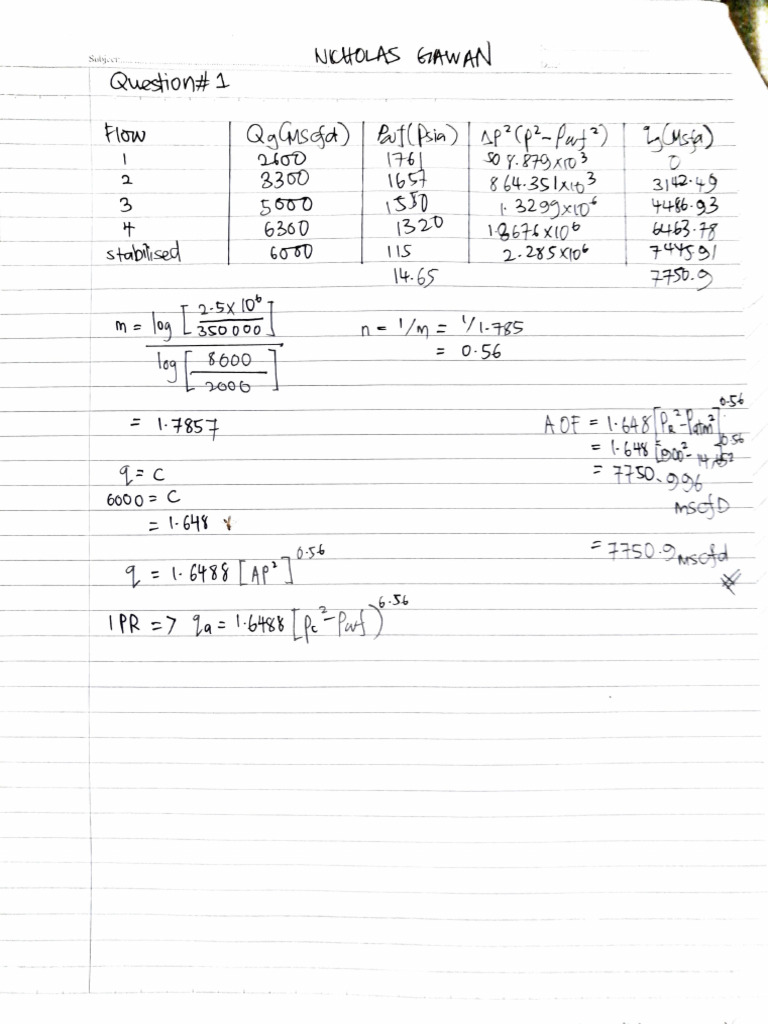 Subject
NICHOLAS GAWAN
Question# 1
Flow Qg(MScfd) Pwf(Psia) ΔP²(P²-Pwf²) q(Mscfd)
1 2600 1761 508.879×10³ 0
2 3300 1657 864.351×10³ 3142.49
3 5000 1550 1.3299×10⁶ 4486.93
4 6300 1320 1.8676×10⁶ 6463.78
stabilised 6000 115 2.285×10⁶ 7445.91
14.65 7750.9
m = log [2.5×10⁶ / 350 000] / log [8600 / 2000]
n = 1/m = 1/1.785
= 0.56
= 1.7857
AOF = 1.648 [PR²-Patm²]^0.56
= 1.648
= 7750.996
MScfD
= 7750.9 Mscfd
q = C
6000 = C
= 1.648
q = 1.6488 [AP²]^0.56
IPR => qa = 1.6488 [Pc²-Pwf)^0.56